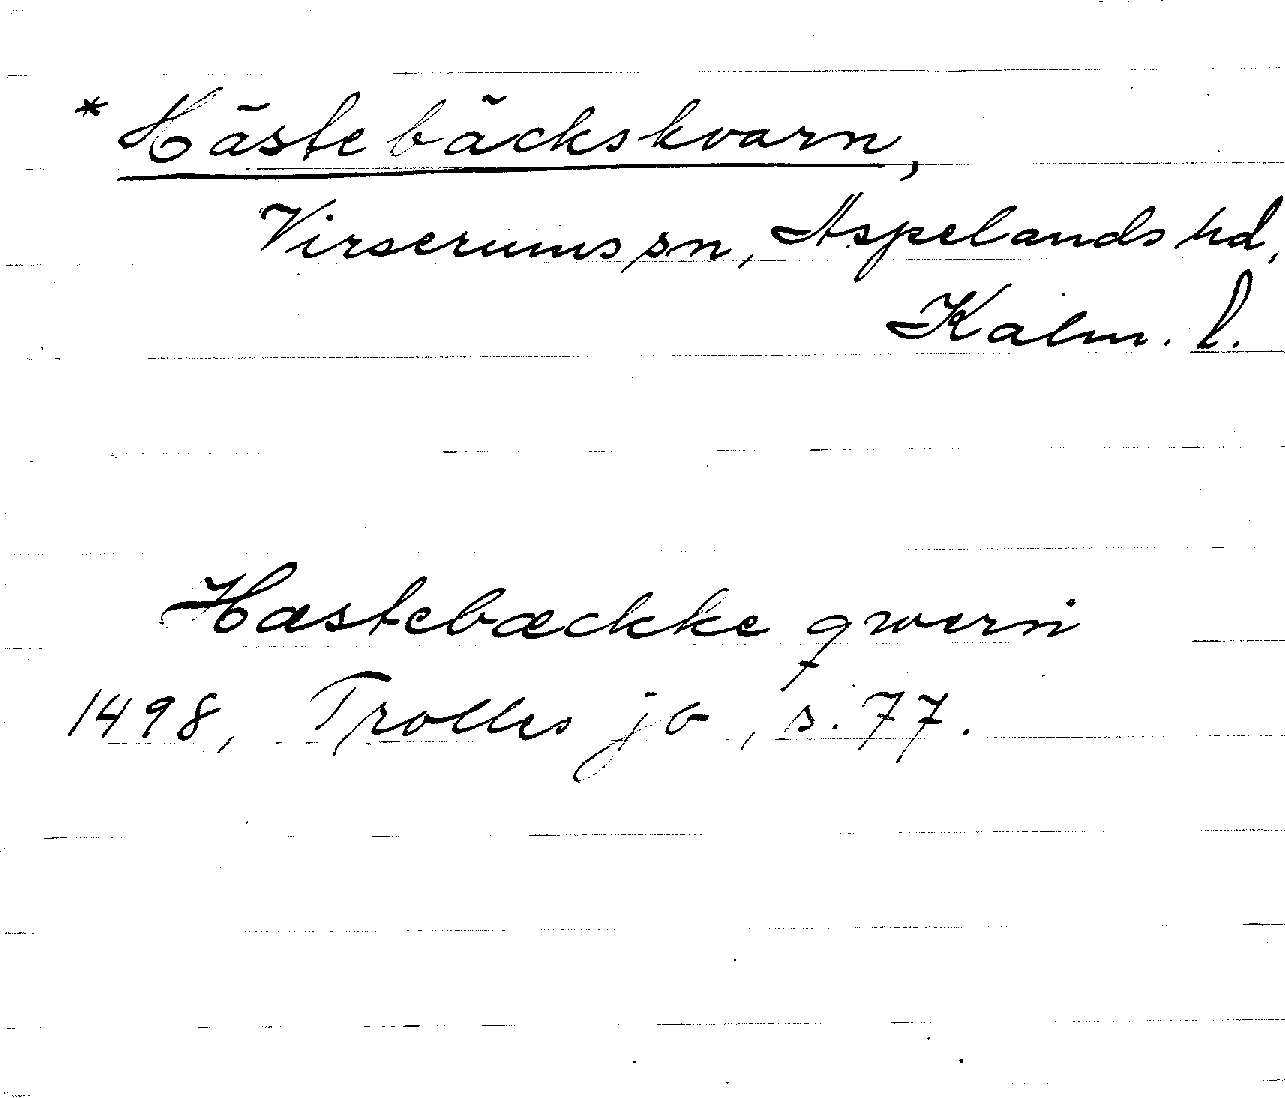 * Hästebäckskvarn,
Virserums sn, Aspelands hd,
Kalm. l.
Hæstebæckke qwern
1498, Trolles jb, s. 77.